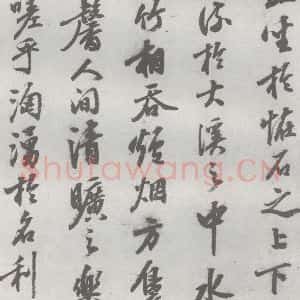 坐於怪石之上下
流於大溪之中水
竹相吞爐烟方
馨人間清曠之樂
嗟乎洶湧於名利
Shufawang.CN